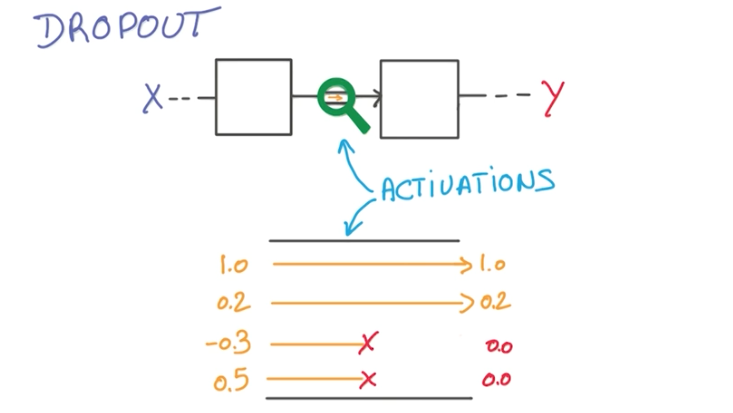 DROPOUT
X Y
ACTIVATIONS
1.0 1.0
0.2 0.2
-0.3 X 0.0
0.5 X 0.0